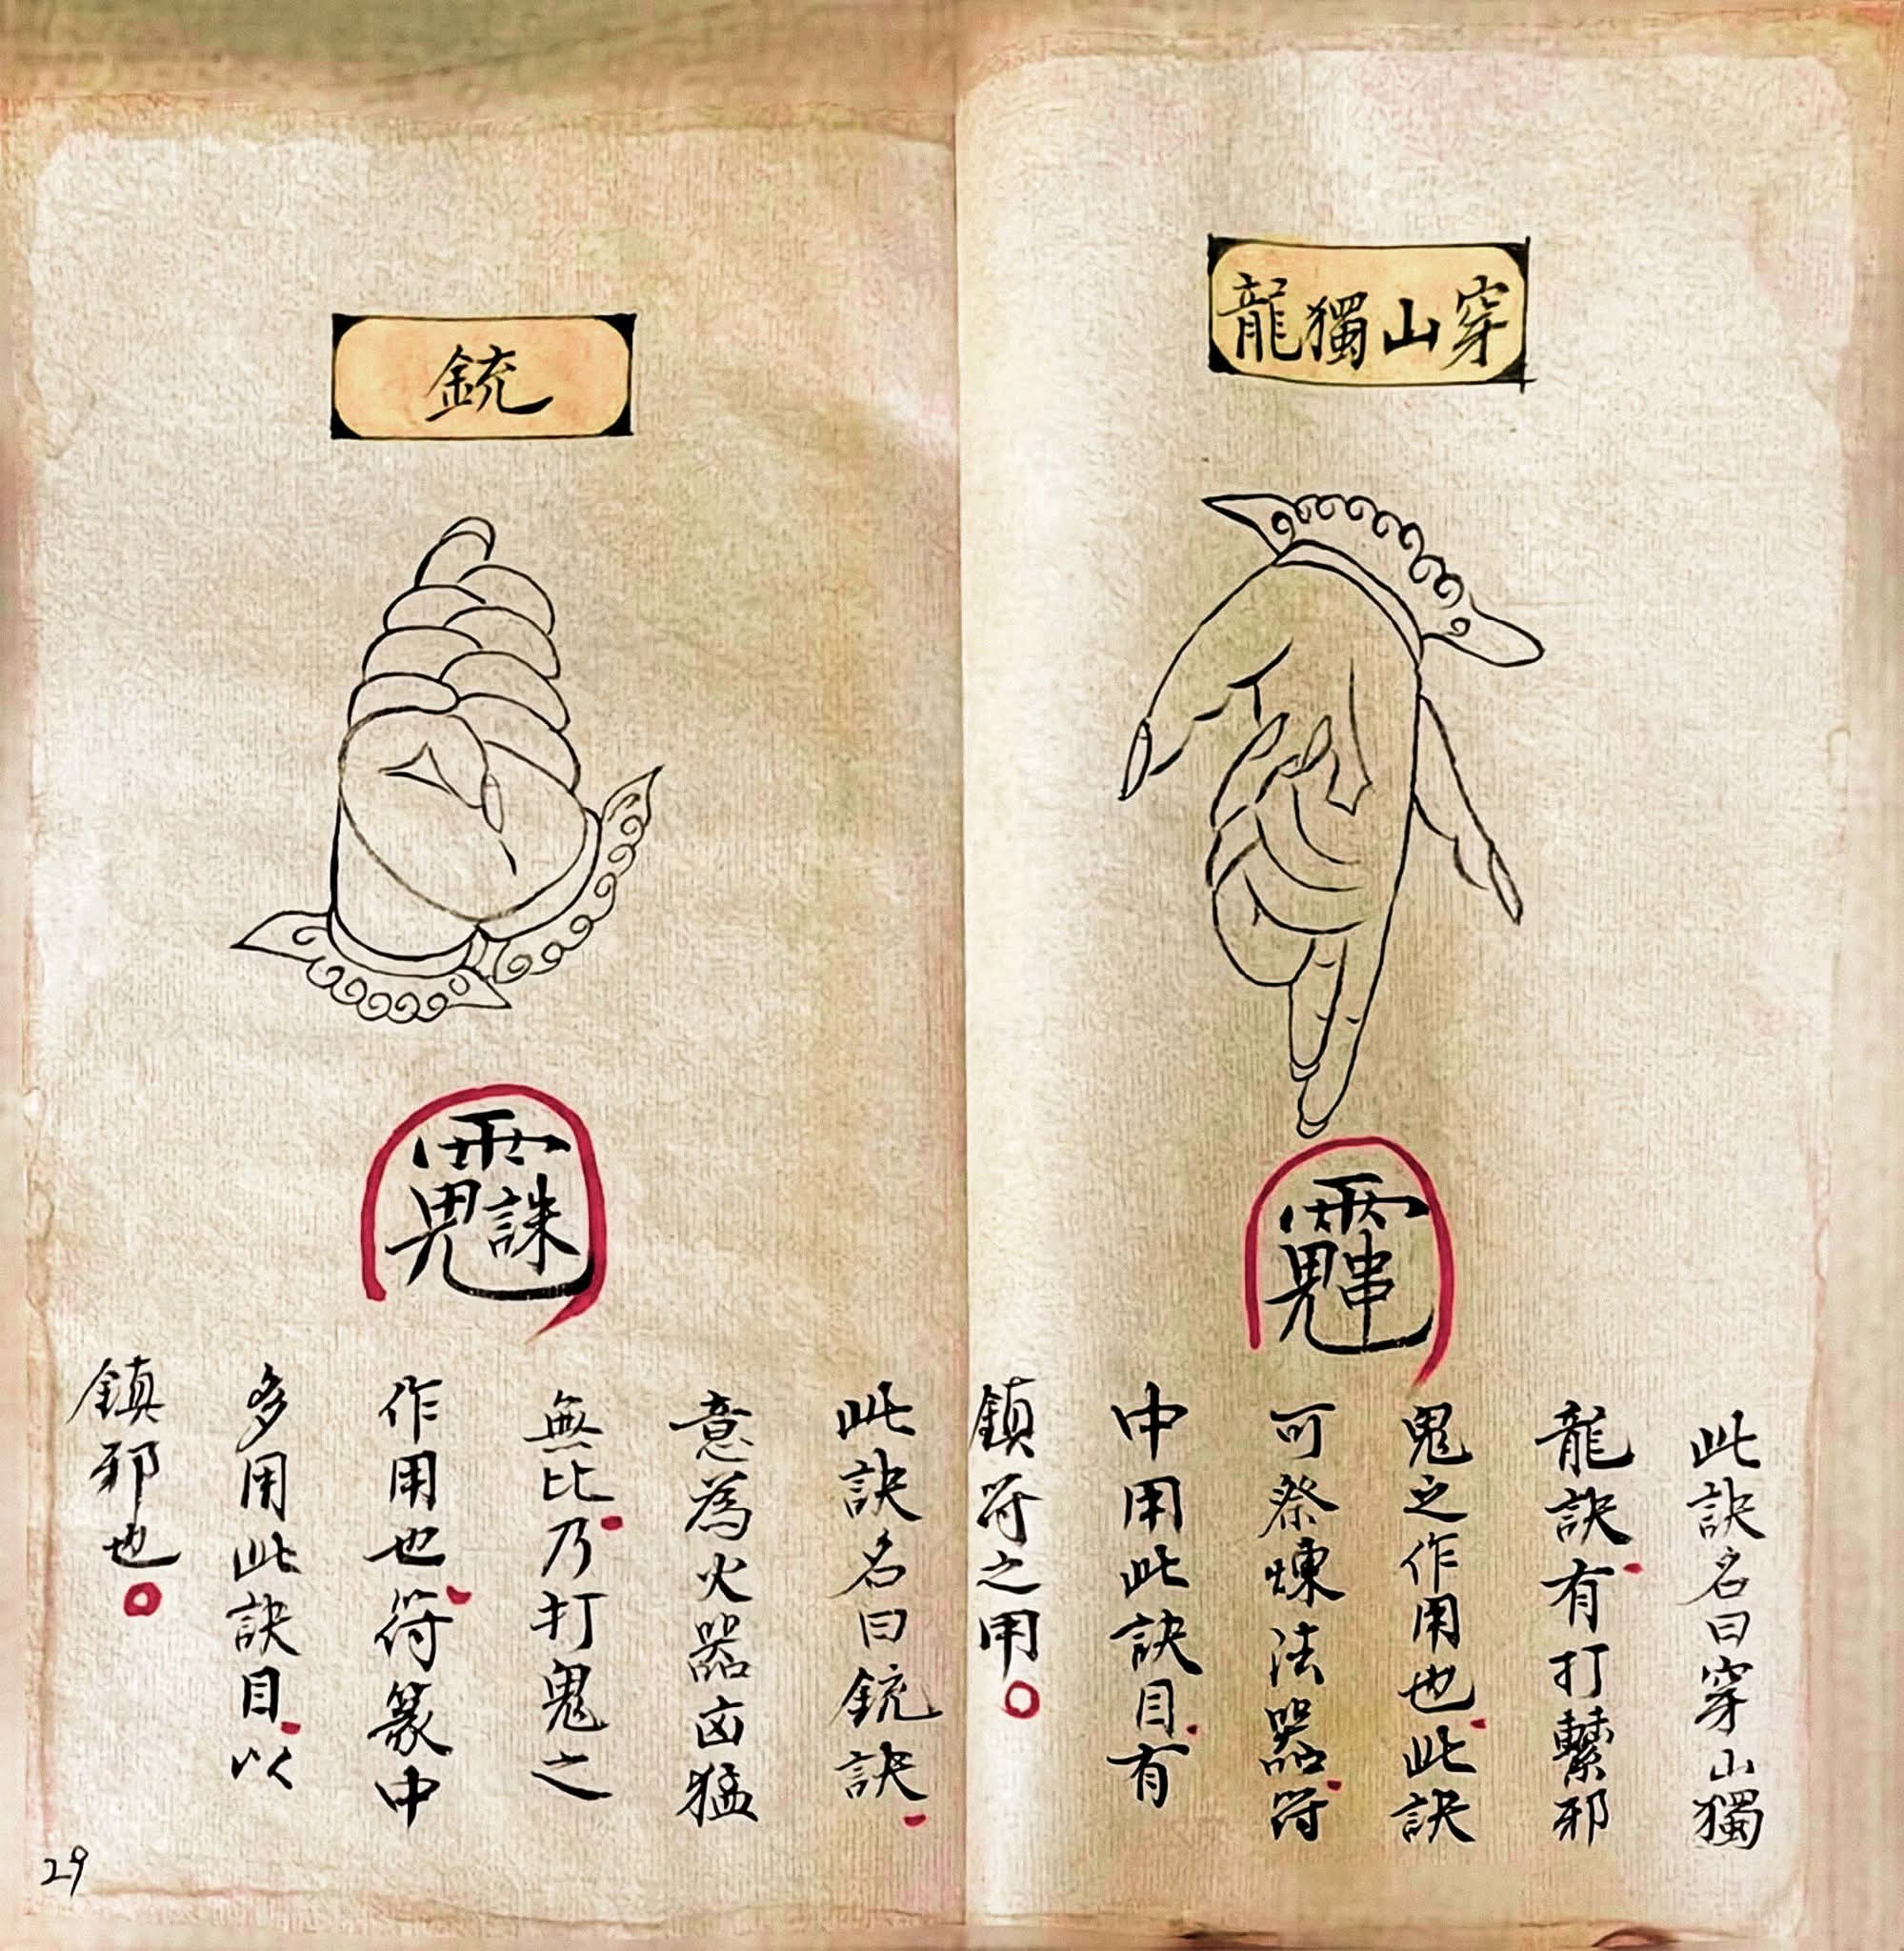 穿山獨龍
此訣名曰穿山獨
龍訣有打繫邪
鬼之作用也此訣
可祭煉法器符
中用此訣目有
鎮符之用
銃
此訣名曰銃訣
意為火器凶猛
無比乃打鬼之
作用也符篆中
多用此訣目以
鎮邪也
29